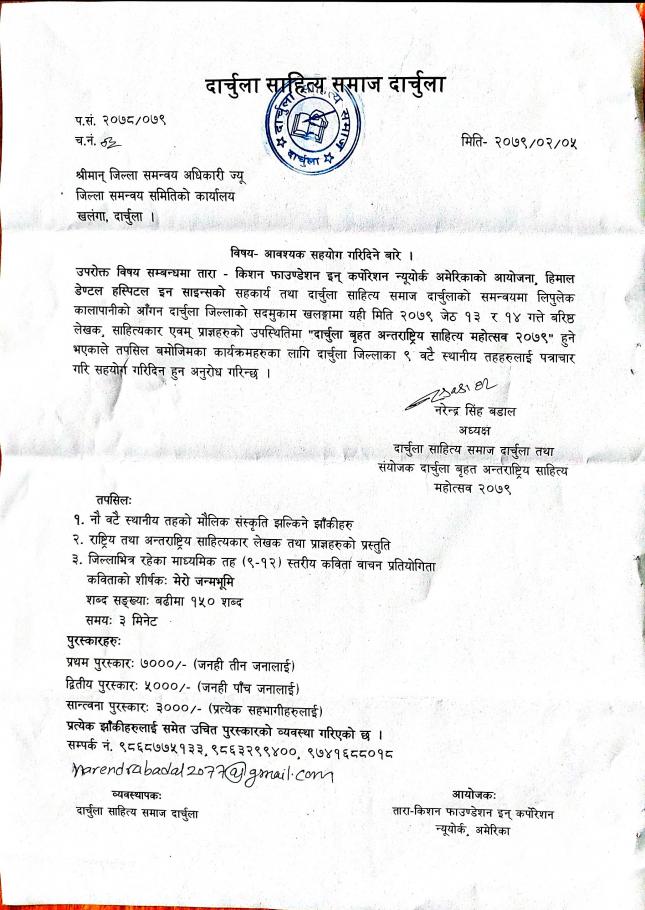 दार्चुला साहित्य समाज दार्चुला
दार्चुला साहित्य समाज
दार्चुला
प.सं. २०७८/०७९
च.नं.
मिति- २०७९/०२/०५
श्रीमान् जिल्ला समन्वय अधिकारी ज्यू
जिल्ला समन्वय समितिको कार्यालय
खलंगा, दार्चुला ।
विषय- आवश्यक सहयोग गरिदिने बारे ।
उपरोक्त विषय सम्बन्धमा तारा - किशन फाउण्डेशन इन् कर्पोरेशन न्यूयोर्क अमेरिकाको आयोजना, हिमाल
डेण्टल हस्पिटल इन साइन्सको सहकार्य तथा दार्चुला साहित्य समाज दार्चुलाको समन्वयमा लिपुलेक
कालापानीको आँगन दार्चुला जिल्लाको सदमुकाम खलङ्गामा यही मिति २०७९ जेठ १३ र १४ गत्ते बरिष्ठ
लेखक, साहित्यकार एवम् प्राज्ञहरुको उपस्थितिमा "दार्चुला बृहत अन्तराष्ट्रिय साहित्य महोत्सव २०७९" हुने
भएकाले तपसिल बमोजिमका कार्यक्रमहरुका लागि दार्चुला जिल्लाका ९ वटै स्थानीय तहहरुलाई पत्राचार
गरि सहयोग गरिदिन हुन अनुरोध गरिन्छ ।
नरेन्द्र सिंह बडाल
अध्यक्ष
दार्चुला साहित्य समाज दार्चुला तथा
संयोजक दार्चुला बृहत अन्तराष्ट्रिय साहित्य
महोत्सव २०७९
तपसिलः
१. नौ वटै स्थानीय तहको मौलिक संस्कृति झल्किने झाँकीहरु
२. राष्ट्रिय तथा अन्तराष्ट्रिय साहित्यकार लेखक तथा प्राज्ञहरुको प्रस्तुति
३. जिल्लाभित्र रहेका माध्यमिक तह (९-१२) स्तरीय कविता वाचन प्रतियोगिता
कविताको शीर्षकः मेरो जन्मभूमि
शब्द सङ्ख्याः बढीमा १५० शब्द
समयः ३ मिनेट
पुरस्कारहरुः
प्रथम पुरस्कारः ७०००/- (जनही तीन जनालाई)
द्वितीय पुरस्कारः ५०००/- (जनही पाँच जनालाई)
सान्त्वना पुरस्कारः ३०००/- (प्रत्येक सहभागीहरुलाई)
प्रत्येक झाँकीहरुलाई समेत उचित पुरस्कारको व्यवस्था गरिएको छ ।
सम्पर्क नं. ९८६८७७५१३३, ९८६३२९९४००, ९७४१६८८०१८
narendrabadal2077@gmail.com
व्यवस्थापकः
दार्चुला साहित्य समाज दार्चुला
आयोजकः
तारा-किशन फाउण्डेशन इन् कर्पोरेशन
न्यूयोर्क, अमेरिका